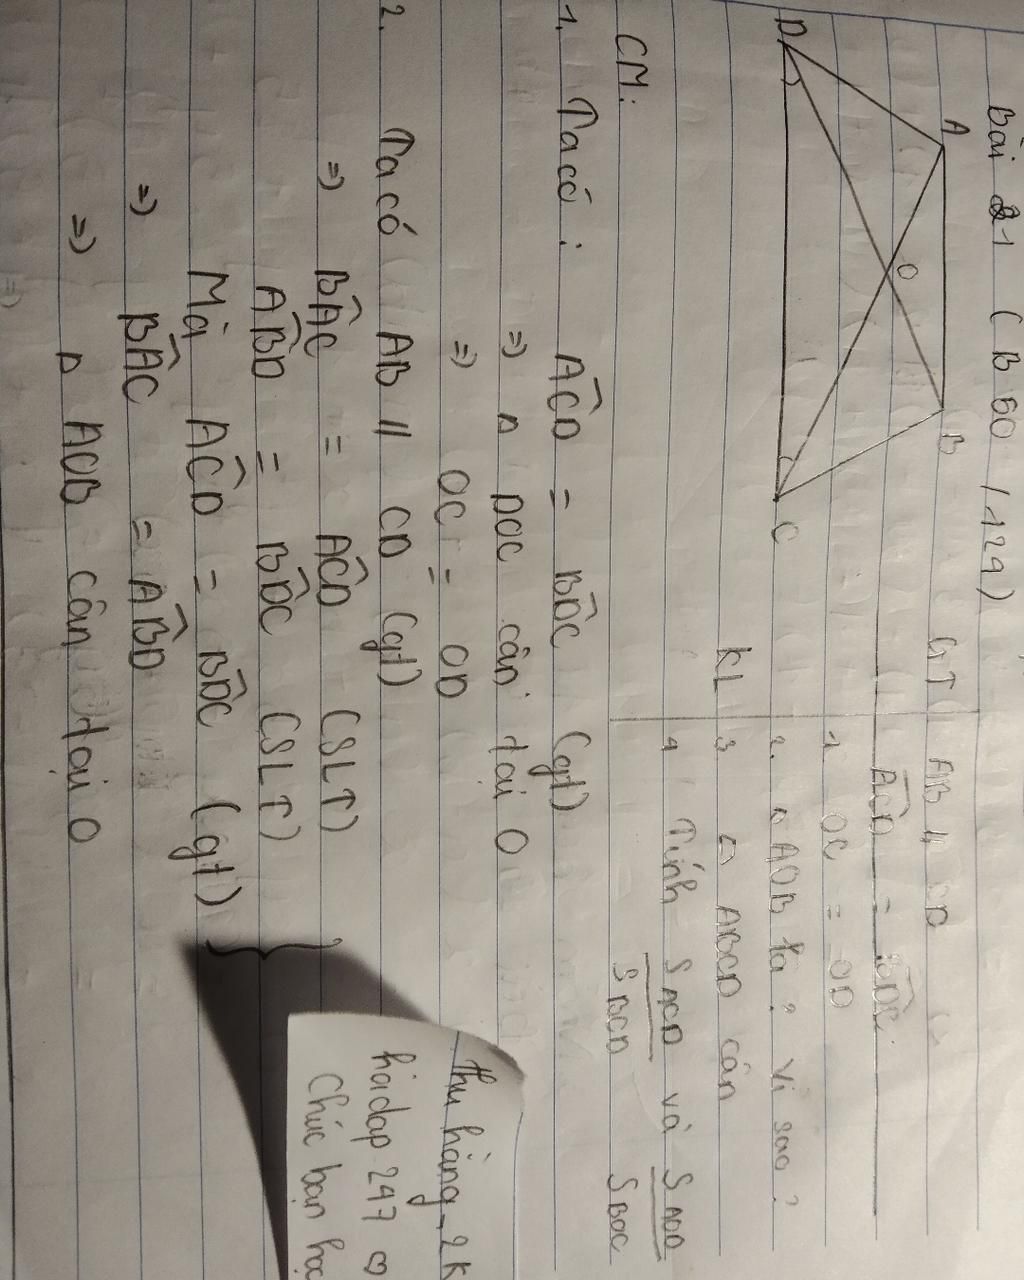 Bài 21 (B50 / 129)
A
B
O
D
C
GT AB // CD
ACD = BDC
1. OC = OD
2. △ AOB là ? Vì sao ?
KL 3 ABCD cân
4 Tính S ACD / S BCD và S AOD / S BOC
CM:
1. Ta có : ACD = BDC (gt)
=> △ DOC cân tại O
=> OC = OD
2. Ta có AB // CD (gt)
=> BAC = ACD (SLT)
ABD = BDC (SLT)
Mà ACD = BDC (gt)
=> BAC = ABD
=> △ AOB cân tại O
=>
thu hằng_2k
hỏidap 247 ♡
Chúc bạn học